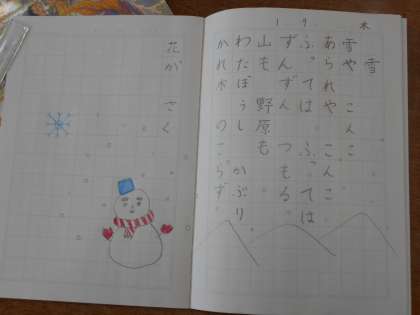 1 9 木
雪
雪や こんこ
あられや こんこ
ふっては ふっては
ずんずん つもる
山も 野原も
わたぼうし かぶり
かれ木 のこらず
花が さく